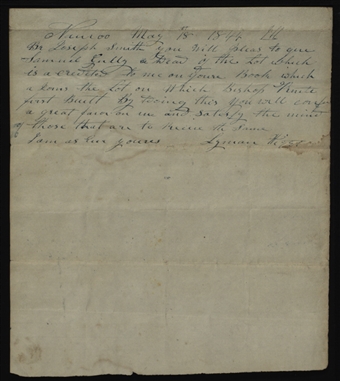 Nauvoo May 18 1844
Mr Joseph Smith you will pleas to give
Samuel Gully a Deed of the Lot which
is a credited to me on youre Book which
a Joins the Lot on Which Bishop
first Built By Doing this you will confer
a great favor on me and satisfy the mind
of those that are to the same
I am as Ever youres Lyman